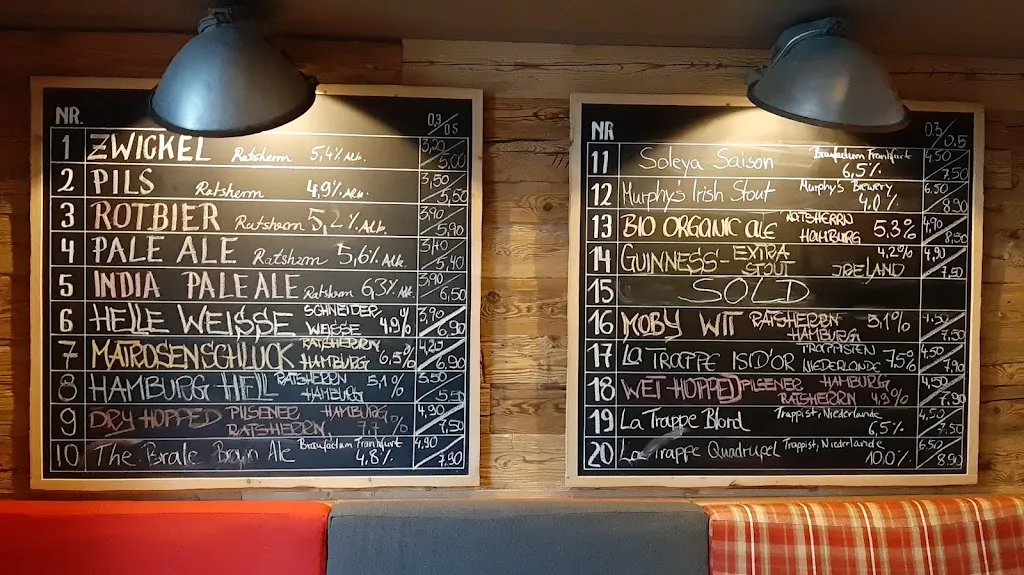 NR. 0,3/0,5
1 ZWICKEL Ratsherrn 5,4% Alk. 3,20/5,00
2 PILS Ratsherrn 4,9% Alk. 3,50/5,50
3 ROTBIER Ratsherrn 5,2% Alk. 3,90/5,90
4 PALE ALE Ratsherrn 5,6% Alk. 3,40/5,40
5 INDIA PALE ALE Ratsherrn 6,3% Alk. 3,90/6,50
6 HELLE WEISSE SCHNEIDER WEISSE 4,9% 3,90/6,90
7 MATROSENSCHLUCK RATSHERRN HAMBURG 6,5% 4,20/6,90
8 HAMBURG HELL RATSHERRN HAMBURG 5,1% 3,50/5,50
9 DRY HOPPED PILSENER HAMBURG RATSHERRN 4,90/7,50
10 The Brale Braun Ale Braufactum Frankfurt 4,8% 4,90/7,90
NR 0.3/0.5
11 Soleya Saison Braufactum Frankfurt 6,5% 4,50/7,50
12 Murphy's Irish Stout Murphy's Brewery 4.0% 6.50/8,90
13 BIO ORGANIC ALE RATSHERRN HAMBURG 5.3% 4,90/8,50
14 GUINNESS- EXTRA STOUT IRELAND 4,2% 4,90/7,50
15 SOLD
16 MOBY WIT RATSHERRN HAMBURG 5,1% 4,50/7,50
17 LA TRAPPE ISID'OR TRAPPISTEN NIEDERLANDE 7,5% 4,50/7,90
18 WET HOPPED PILSENER HAMBURG RATSHERRN 4,9% 4,50/7,90
19 La Trappe Blond Trappist, Niederlande 6,5% 4,50/7,50
20 La Trappe Quadrupel Trappist, Niederlande 10.0% 6,50/8,90